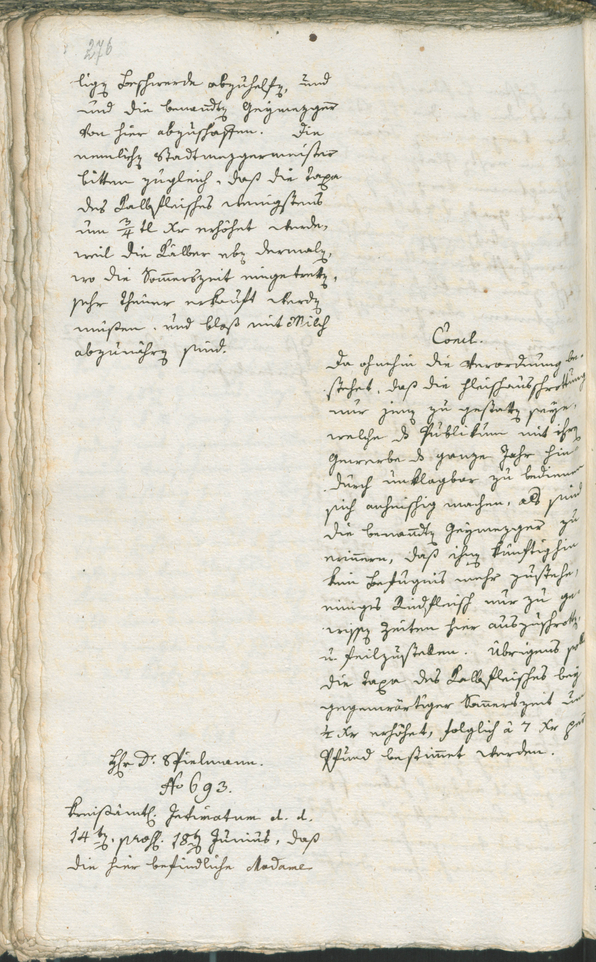 276
ligen Beschwerde abzuhelfen, und
und die benandten Geymezger
von hier abzuschaffen. Die
nemlichen Stadtmezgermeister
bitten zugleich, daß die Taxa
des Kalbfleisches wenigstens
um 3/4 tl Xr erhöhet werde,
weil die Kälber eben dermalen,
wo die Som̄erszeit eingetretten,
sehr theuer erkauft werden
müßen, und bloß mit Milch
abzunähren sind.
Concl.
Da ohnehin die Verordnung be-
stehet, daß die Fleischausschrottung
nur jenen zu gestatten seye,
welche ds Publikum mit ihren
Gewerbe ds ganze Jahr hin
durch unklagbar zu bedienen
sich anheischig machen, als sind
die benandten Geymezger zu
erinnern, daß ihnen künftighin
kein Befugnis mehr zustehe,
einiges Rindfleisch nur zu ge-
wissen Zeiten hier auszuschrotten
u. feilzustellen. Übrigens solle
die Taxa des Kalbfleisches bey
gegenwärtiger Som̄erszeit um
1/2 Xr erhöhet, folglich à 7 Xr per
Pfund bestim̄et werden.
Hr Dr. Spielmann.
No 693.
Kreisämtl. Intimatum d. d.
14ten, praes. 18ten Junius, daß
die hier befindliche Madame